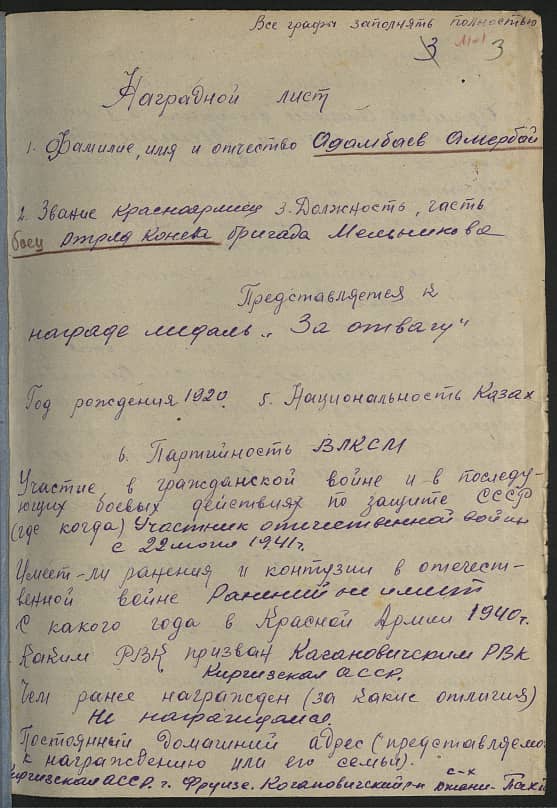 Все графы заполнять полностью
3 3
Наградной лист
1. Фамилие, имя и отчество Адамбаев Амербай
2. Звание красноармеец 3. Должность, часть
боец отряд Конева бригада Мельникова
Представляется к
награде медаль „За отвагу"
Год рождения 1920 5. Национальность Казах
6. Партийность ВЛКСМ
Участие в гражданской войне и в последу-
ющих боевых действиях по защите СССР
(где когда) Участник отечественной войны
с 22 июня 1941г.
Имеет-ли ранения и контузии в отечест-
венной войне Ранений не имеет
С какого года в Красной Армии 1940г.
Каким РВК призван Кагановичским РВК
Киргизская АССР.
Чем ранее награжден (за какие отличия)
Не награждался.
Постоянный домашний адрес (представляемо
к награждению или его семьи).
Киргизская АССР. г. Фрунзе. Когановичский р-н с-х